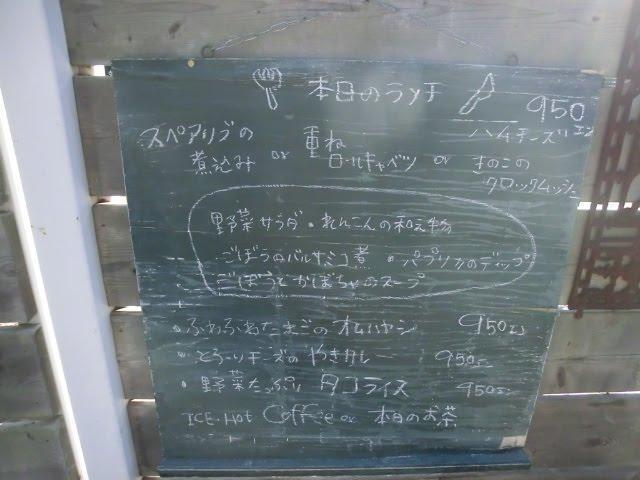 本日のランチ 950エン
スペアリブの煮込み or 重ねロールキャベツ or ハムチーズきのこのクロックムッシュ
野菜サラダ・れんこんの和え物
ごぼうのバルサミコ煮・パプリカのディップ
ごぼうとかぼちゃのスープ
・ふわふわたまごのオムハヤシ 950エン
・とろーりチーズのやきカレー 950エン
・野菜たっぷり タコライス 950エン
ICE・Hot Coffee or 本日のお茶